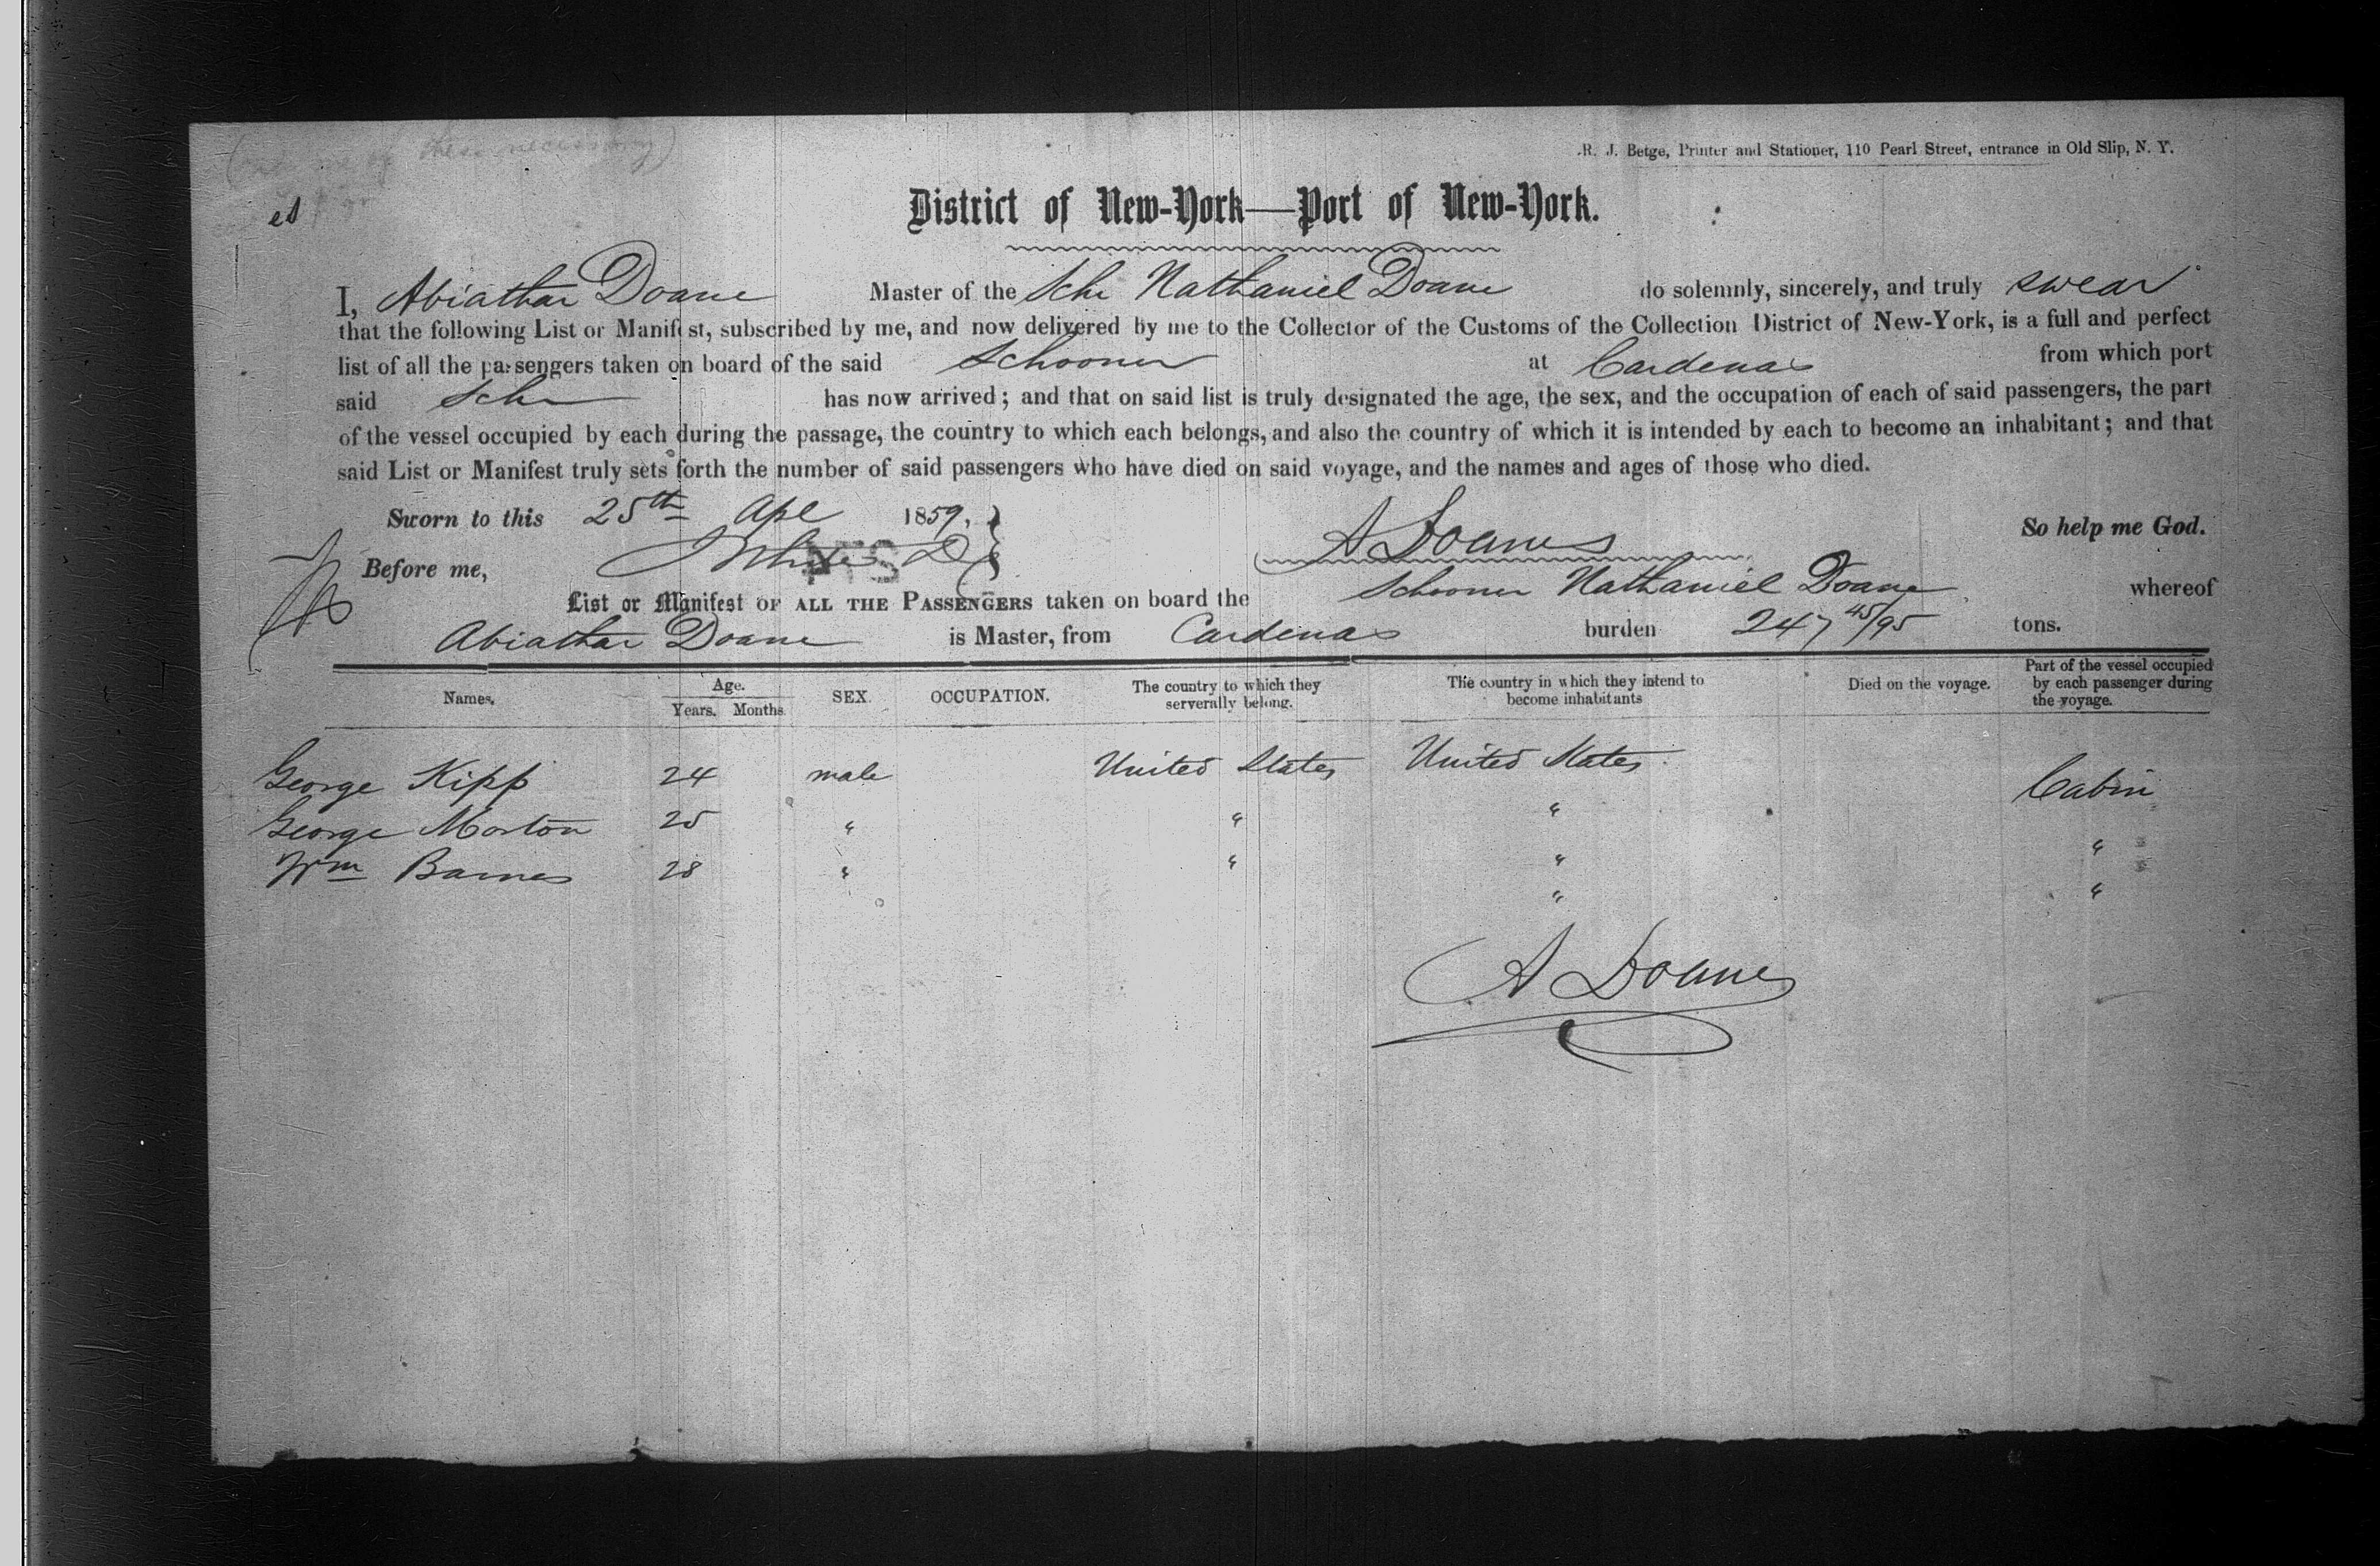 R. J. Betge, Printer and Stationer, 110 Pearl Street, entrance in Old Slip, N. Y.
District of New-York—Port of New-York.
I, Abiathar Doane Master of the Schr Nathaniel Doane do solemnly, sincerely, and truly swear
that the following List or Manifest, subscribed by me, and now delivered by me to the Collector of the Customs of the Collection District of New-York, is a full and perfect
list of all the passengers taken on board of the said Schooner at Cardenas from which port
said Schr has now arrived; and that on said list is truly designated the age, the sex, and the occupation of each of said passengers, the part
of the vessel occupied by each during the passage, the country to which each belongs, and also the country of which it is intended by each to become an inhabitant; and that
said List or Manifest truly sets forth the number of said passengers who have died on said voyage, and the names and ages of those who died.
Sworn to this 25th Apl 1859, A Doane So help me God.
Before me,
List or Manifest OF ALL THE PASSENGERS taken on board the Schooner Nathaniel Doane whereof
Abiathar Doane is Master, from Cardenas burden 247 45/95 tons.
Names. Age. Years. Months. SEX. OCCUPATION. The country to which they serverally belong. The country in which they intend to become inhabitants Died on the voyage. Part of the vessel occupied by each passenger during the voyage.
George Kipp 24 male United States United States Cabin
George Morton 25 " " " "
Wm Barnes 28 " " " "
"
A Doane